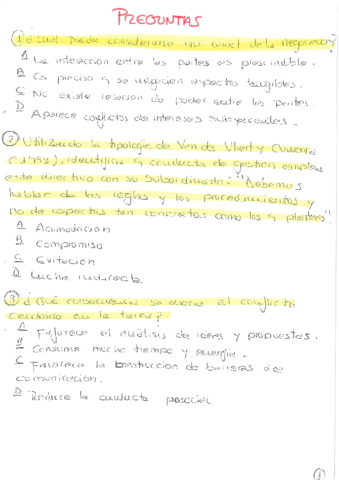 PREGUNTAS
① ¿Cuál puede considerarse una caract. de la negociación?
A La interacción entre las partes es prescindible.
B Es preciso q se negocien aspectos tangibles.
C No existe relación de poder entre las partes.
D Aparece conflictos de intereses subyacentes.
② Utilizando la tipología de Van de Vliert y Euwema
(1994), identifica q conducta de gestión emplea
este directivo con su subordinado: "Debemos
hablar de las reglas y los procedimientos y
no de aspectos tan concretos como los q planteas"
A Acomodación
B Compromiso
C Evitación
D Lucha indirecta
③ ¿Qué consecuencia se asocia al conflicto
centrado en la tarea?
A Favorece el análisis de ideas y propuestas.
B Consume mucho tiempo y energía.
C Favorece la construcción de barreras de
comunicación.
D Reduce la conducta prosocial
①